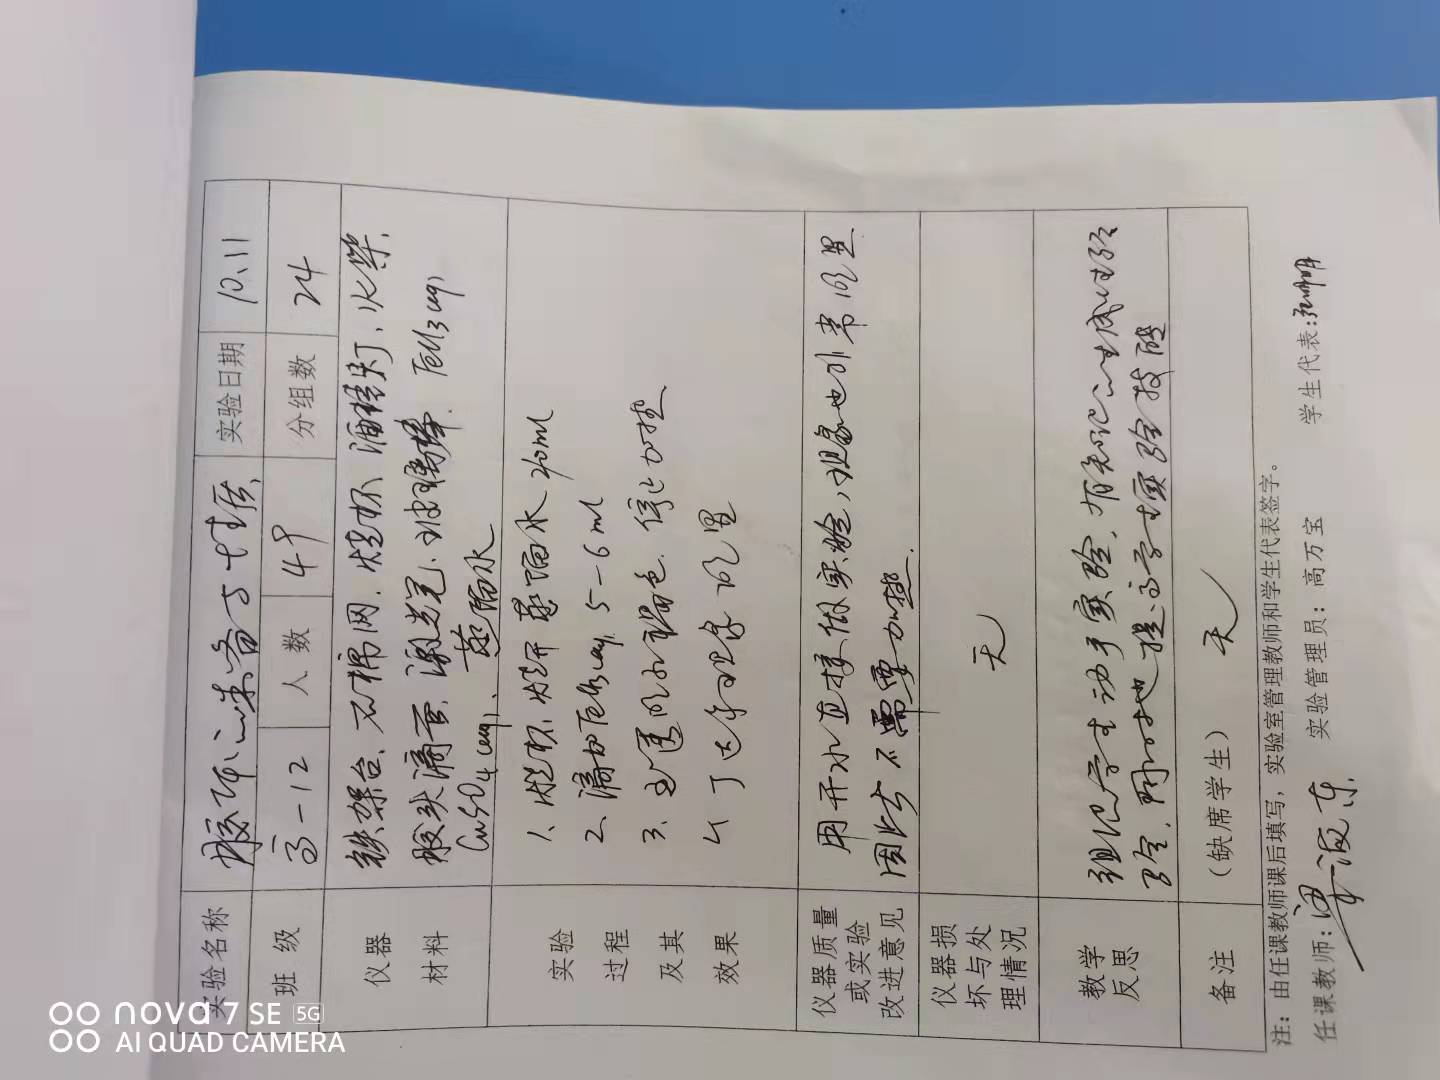 实验名称 胶体的制备与性质 实验日期 10.11
班级 高一12 人数 49 分组数 24
仪器材料 铁架台、石棉网、烧杯、酒精灯、火柴、
胶头滴管、激光笔、玻璃棒、FeCl3(aq)
CuSO4(aq)、蒸馏水
实验过程及其效果
1、烧杯 蒸馏水 40ml
2、滴加FeCl3(aq) 5-6ml
3、至液体 褐色、停止加热
4、丁达尔现象 明显
仪器质量或实验改进意见 用开水直接做实验,现象也非常明显
因此 不需要加热.
仪器损坏与处理情况 无
教学反思 组织学生动手实验,
同时也提高学生实验技能
备注 (缺席学生) 无
注:由任课教师课后填写,实验室管理教师和学生代表签字。
任课教师: 实验管理员:高万宝 学生代表:
nova 7 SE 5G
AI QUAD CAMERA